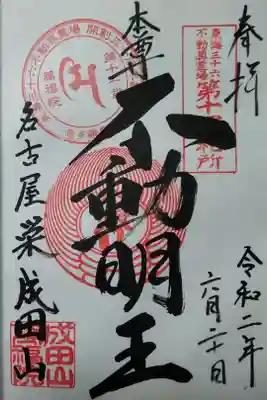 奉拝
令和二年
六月二十日
本尊
不動明王
名古屋栄成田山
東海三十六
不動尊霊場
萬福院
成田山